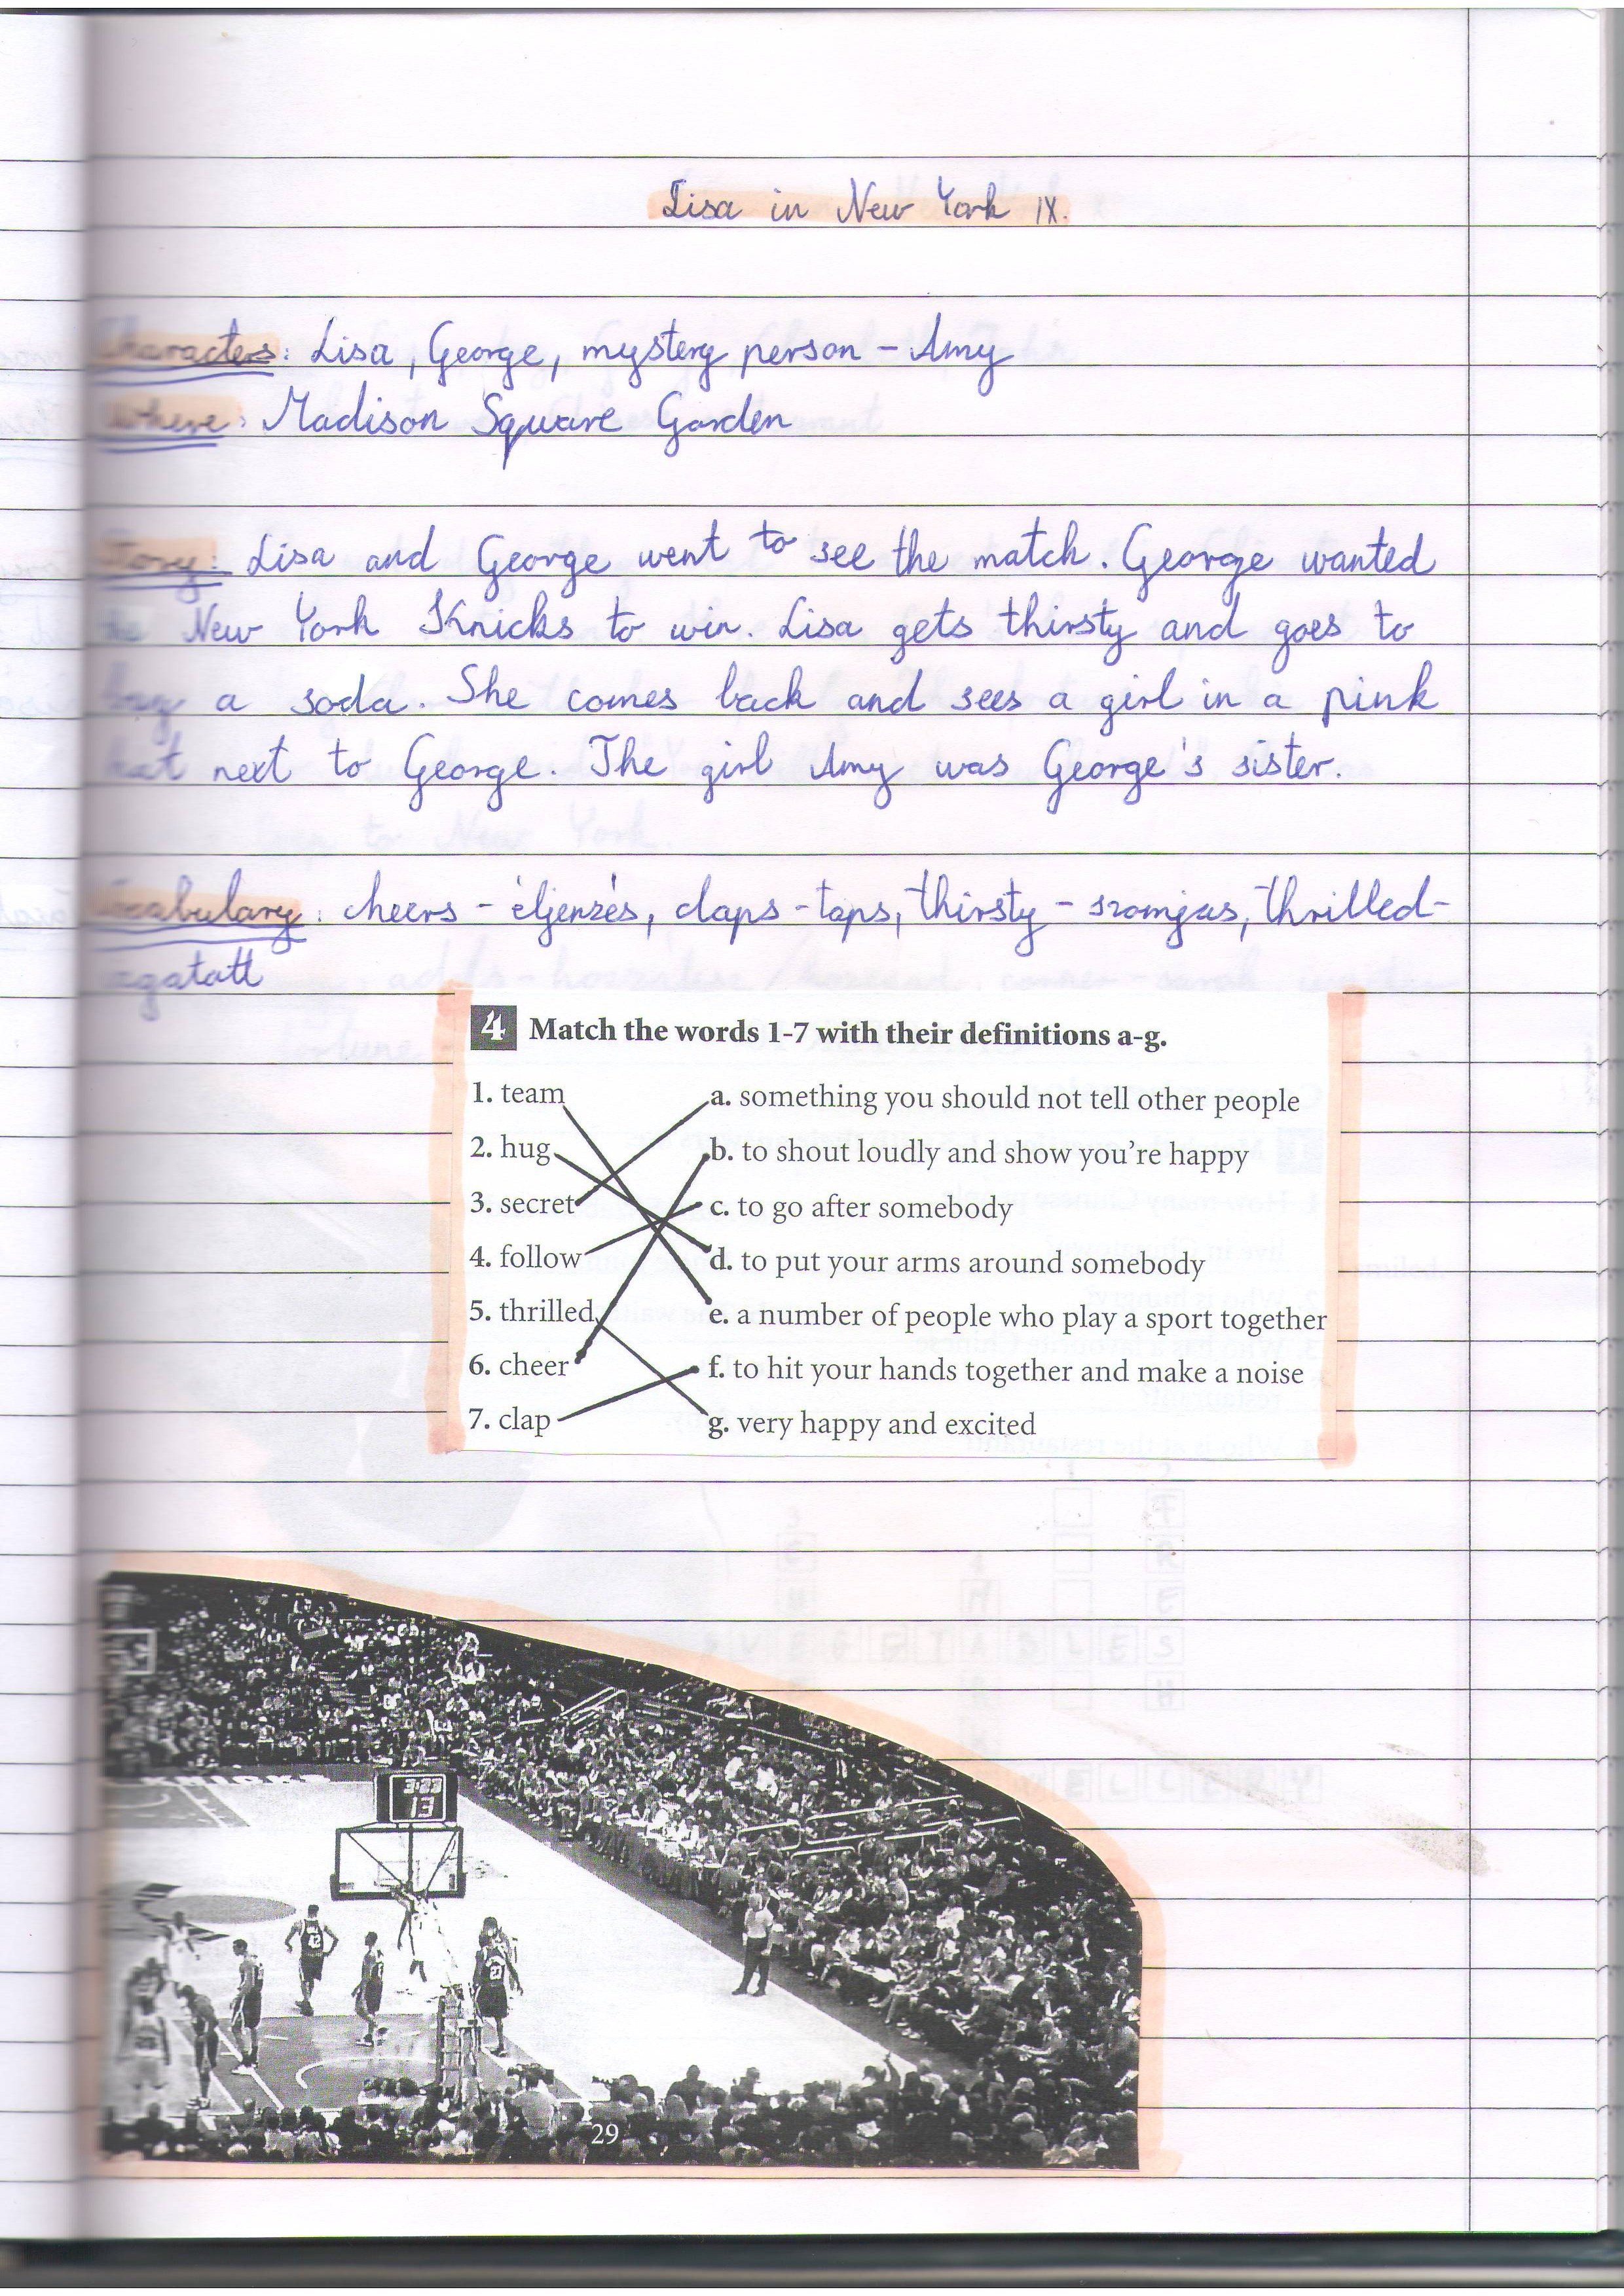 Lisa in New York IX.
Characters: Lisa, George, mystery person - Amy
Where: Madison Square Garden
Story: Lisa and George went to see the match. George wanted
the New York Knicks to win. Lisa gets thirsty and goes to
buy a soda. She comes back and sees a girl in a pink
hat next to George. The girl Amy was George's sister.
Vocabulary: cheers - éljenzés, claps - taps, thirsty - szomjas, thrilled-
izgatott
4 Match the words 1-7 with their definitions a-g.
1. team a. something you should not tell other people
2. hug b. to shout loudly and show you're happy
3. secret c. to go after somebody
4. follow d. to put your arms around somebody
5. thrilled e. a number of people who play a sport together
6. cheer f. to hit your hands together and make a noise
7. clap g. very happy and excited
3:23
13
42
23
29